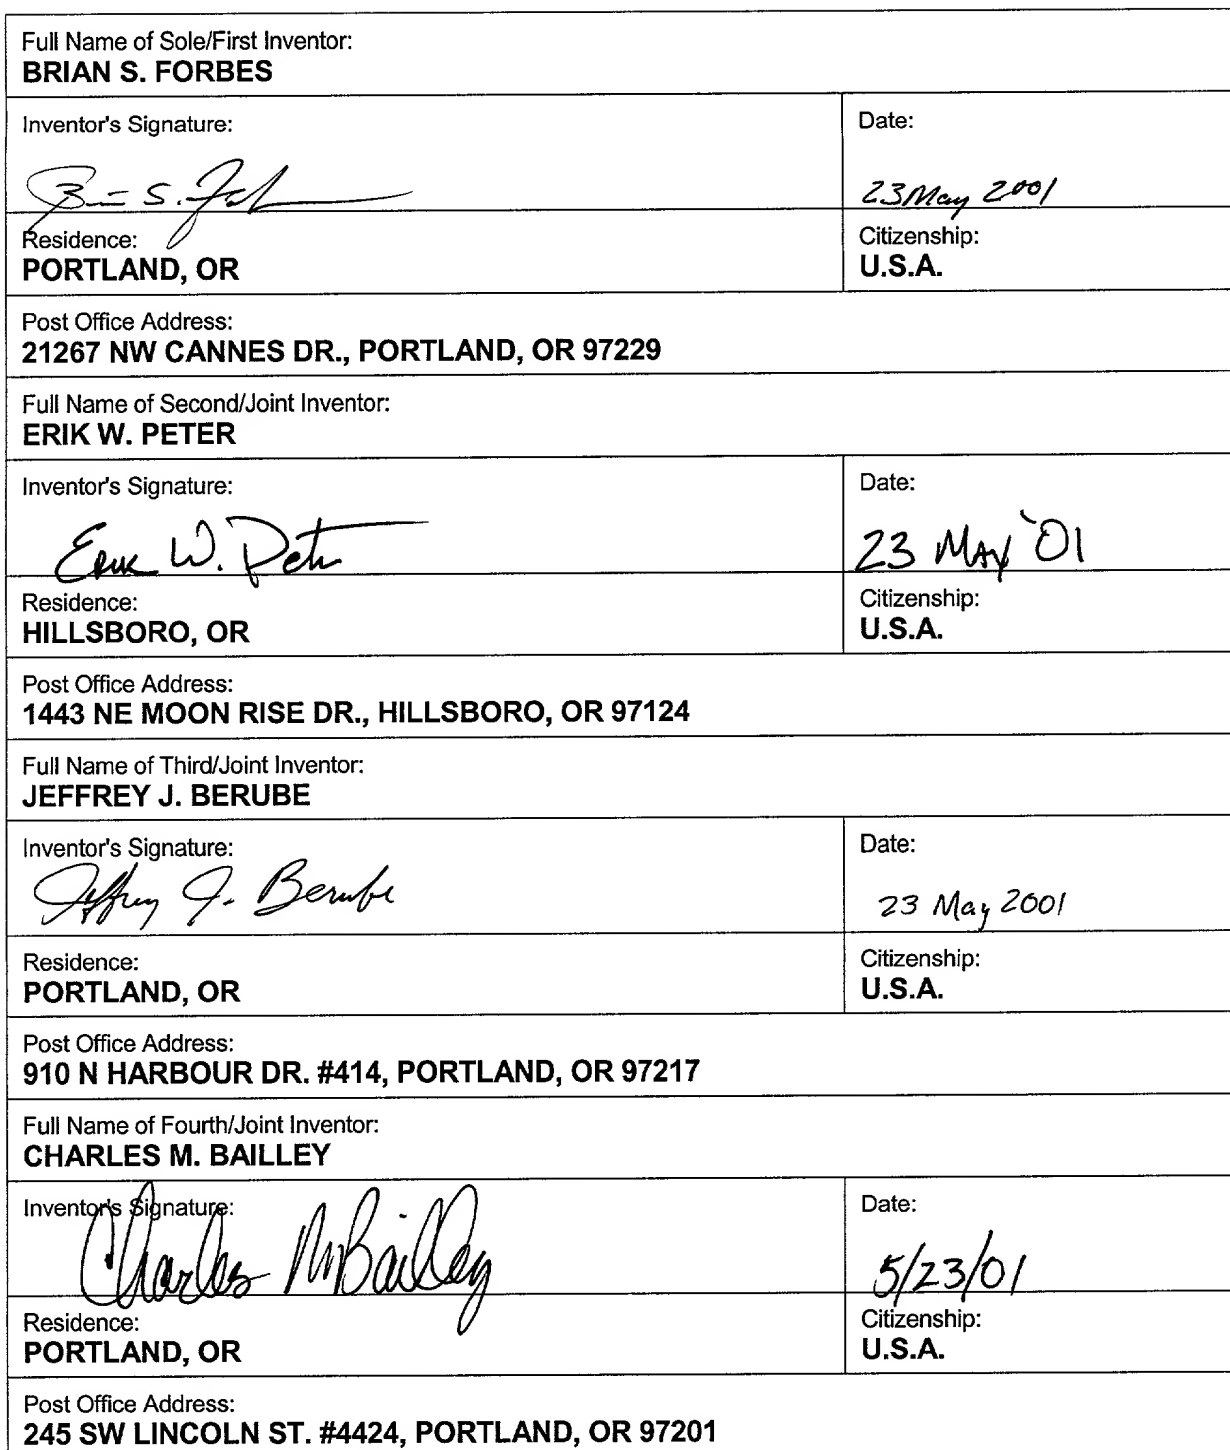 Full Name of Sole/First Inventor:
BRIAN S. FORBES
Inventor's Signature: Date:
Brian S. Forbes 23 May 2001
Residence: Citizenship:
PORTLAND, OR U.S.A.
Post Office Address:
21267 NW CANNES DR., PORTLAND, OR 97229
Full Name of Second/Joint Inventor:
ERIK W. PETER
Inventor's Signature: Date:
Erik W. Peter 23 MAY '01
Residence: Citizenship:
HILLSBORO, OR U.S.A.
Post Office Address:
1443 NE MOON RISE DR., HILLSBORO, OR 97124
Full Name of Third/Joint Inventor:
JEFFREY J. BERUBE
Inventor's Signature: Date:
Jeffrey J. Berube 23 May 2001
Residence: Citizenship:
PORTLAND, OR U.S.A.
Post Office Address:
910 N HARBOUR DR. #414, PORTLAND, OR 97217
Full Name of Fourth/Joint Inventor:
CHARLES M. BAILLEY
Inventor's Signature: Date:
Charles M Bailley 5/23/01
Residence: Citizenship:
PORTLAND, OR U.S.A.
Post Office Address:
245 SW LINCOLN ST. #4424, PORTLAND, OR 97201